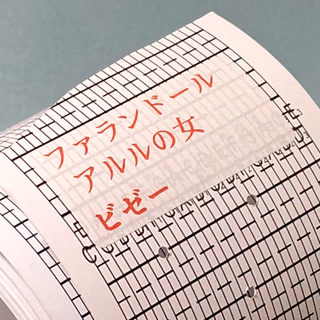 ファランドール
アルルの女
ビゼー